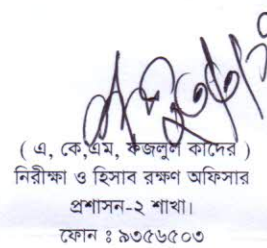 ( এ, কে,এম, ফজলুল কাদের )
নিরীক্ষা ও হিসাব রক্ষণ অফিসার
প্রশাসন-২ শাখা।
ফোন ঃ ৯৩৫৬৫০৩